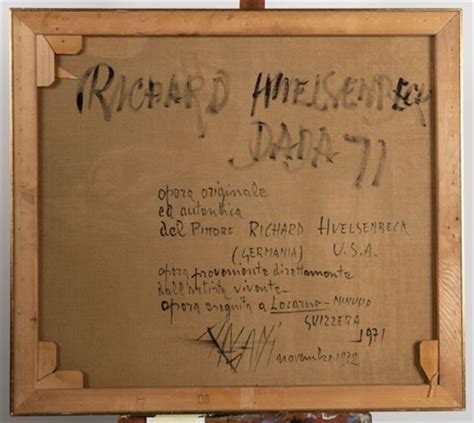 RICHARD HUELSENBECK
DADA 71
opera originale
ed autentica
del PITTORE RICHARD HUELSENBECK
(GERMANIA) U.S.A.
opera proveniente direttamente
dall'artista vivente-
opera eseguita a Locarno-MINUSIO
SVIZZERA
1971
novembre 1972